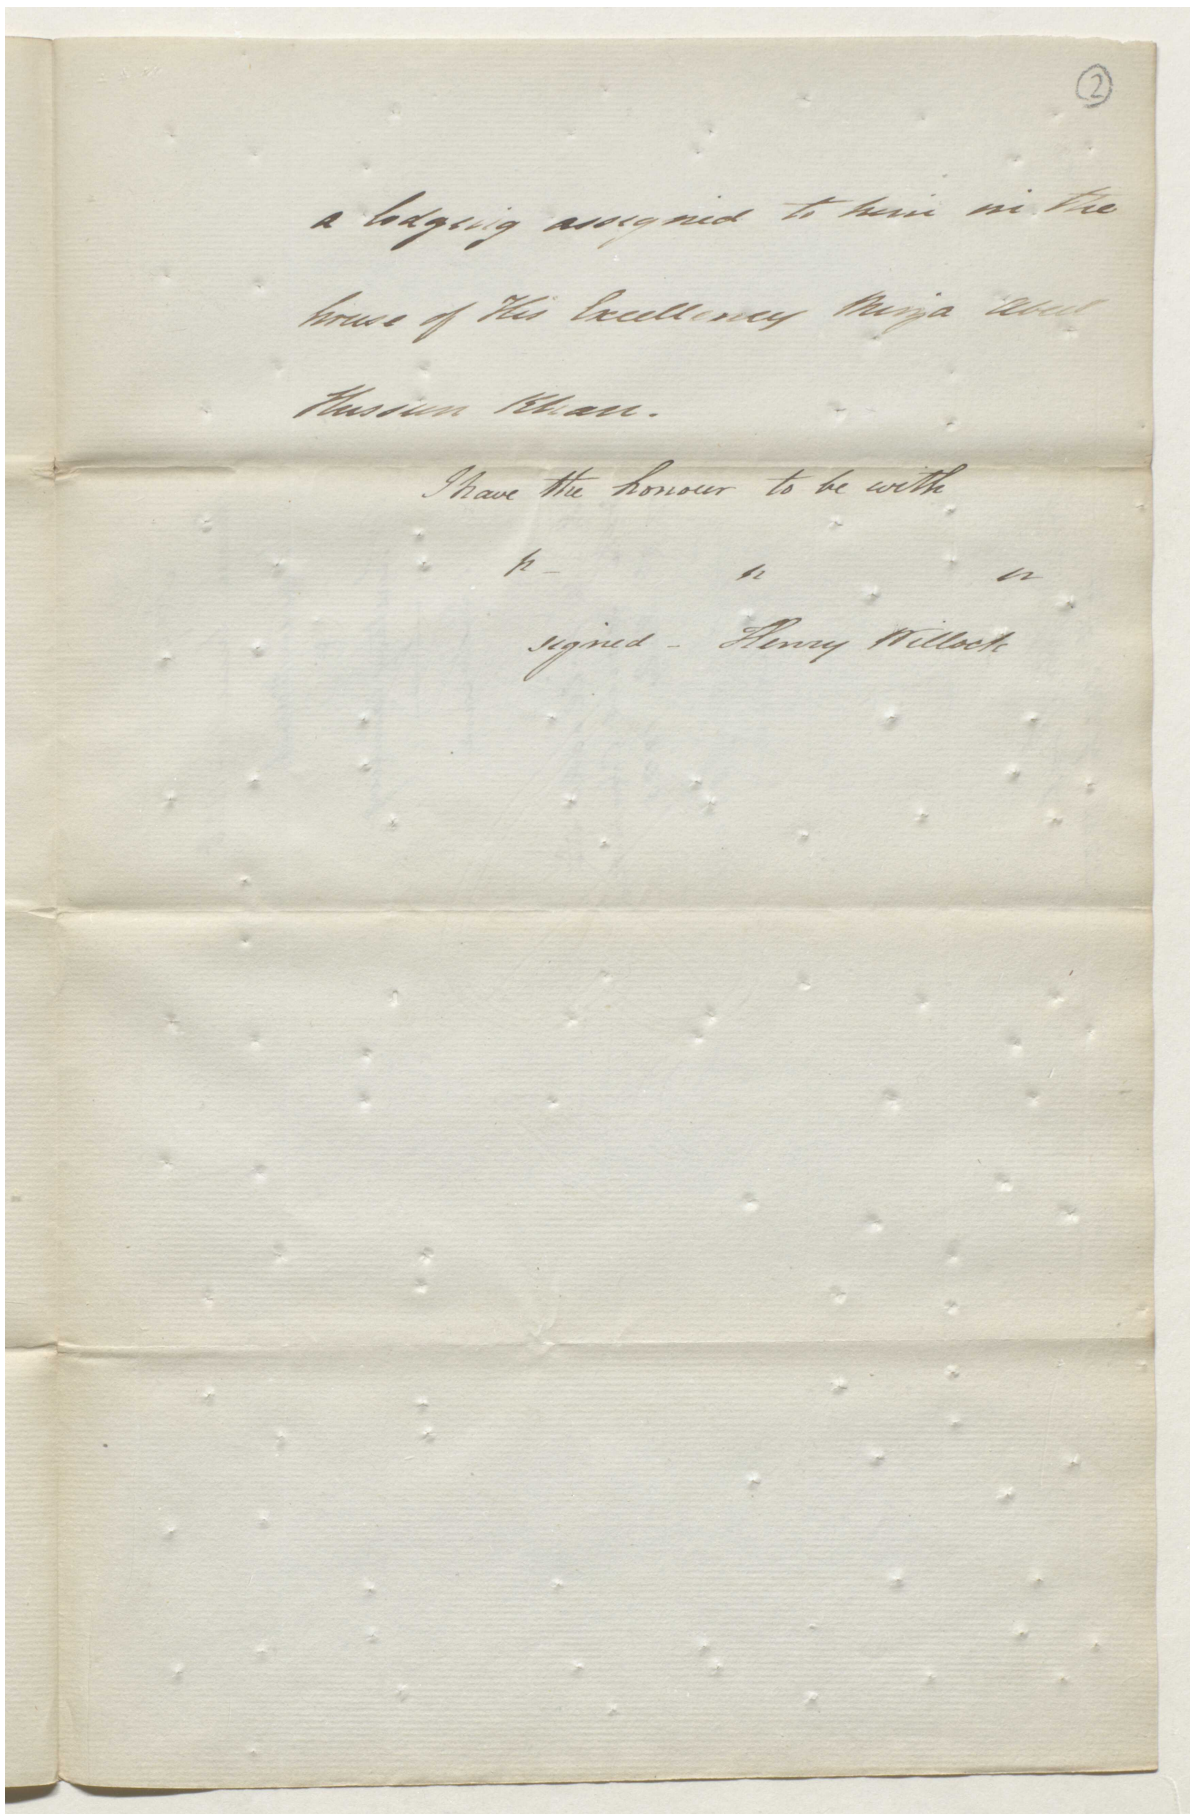 2
a lodging assigned to him in the
house of His Excellency Mirza Abul
Hussun Khan.
I have the honour to be with
signed - Henry Willock